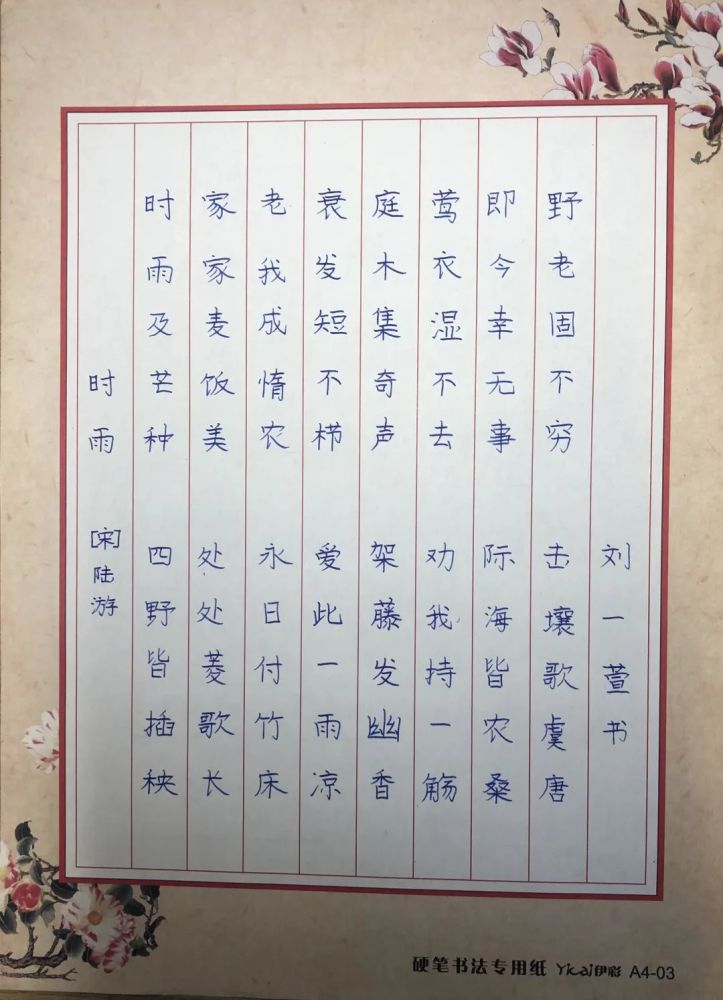 时雨 [宋]陆游
时雨及芒种 四野皆插秧
家家麦饭美 处处菱歌长
老我成惰农 永日付竹床
衰发短不栉 爱此一雨凉
庭木集奇声 架藤发幽香
莺衣湿不去 劝我持一觞
即今幸无事 际海皆农桑
野老固不穷 击壤歌虞唐
刘一萱书
硬笔书法专用纸 Yicai伊彩 A4-03